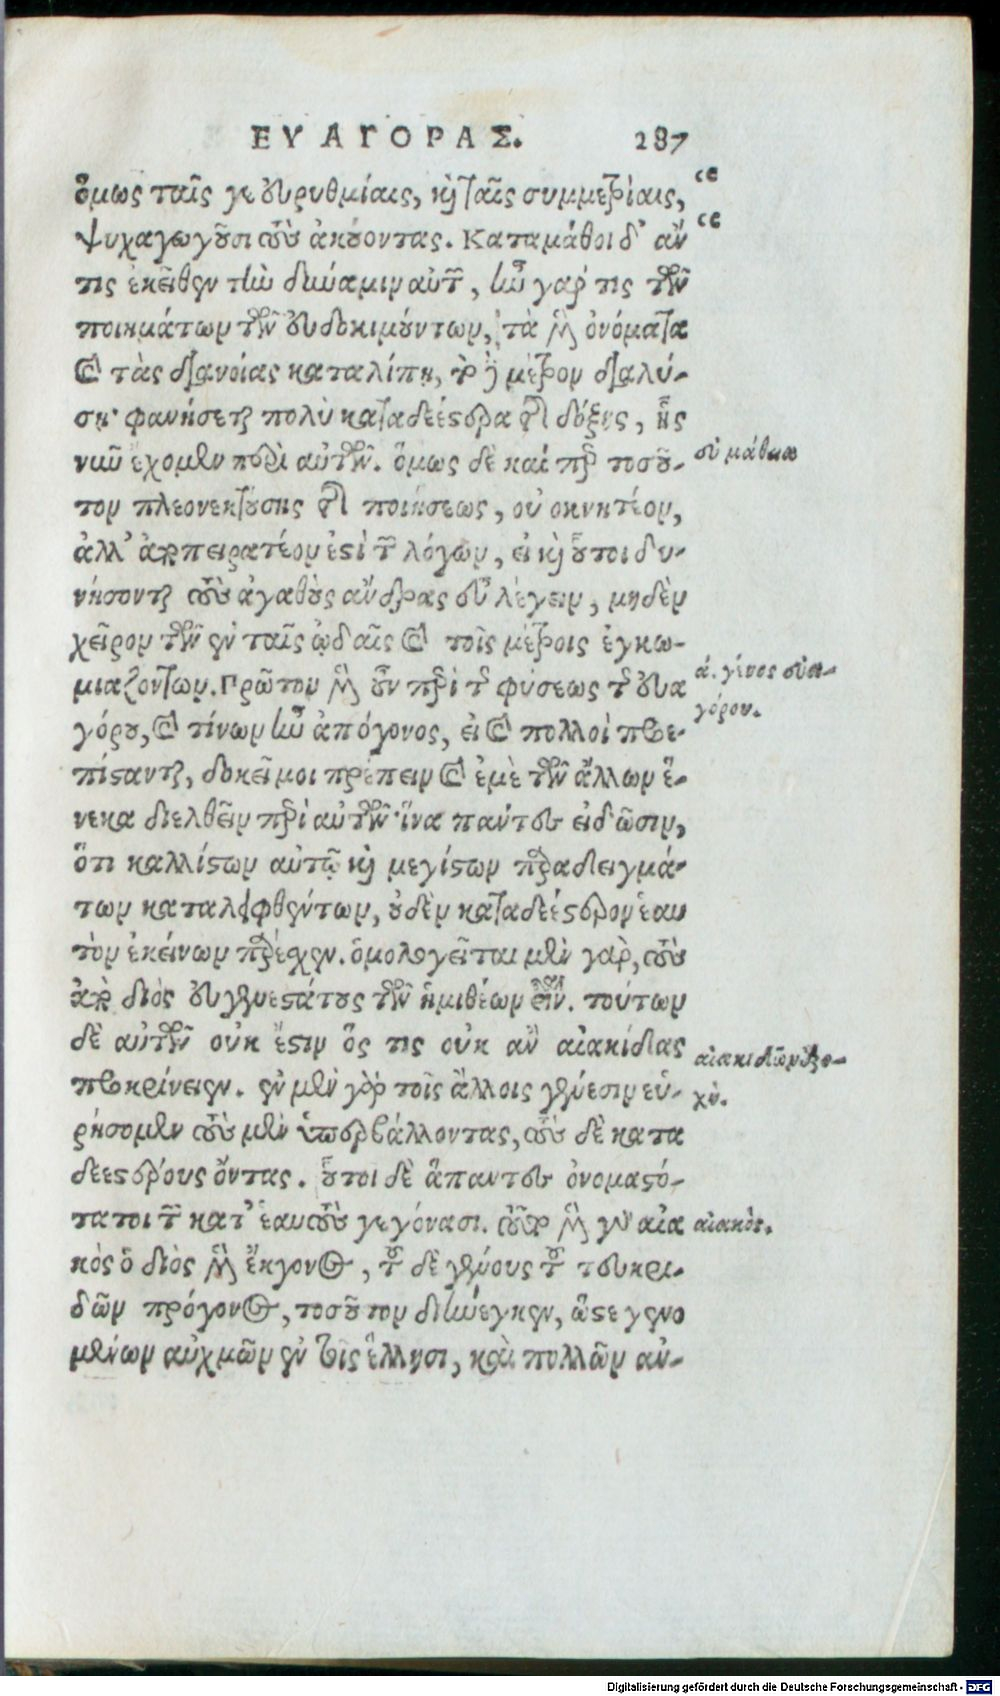 ΕΥΑΓΟΡΑΣ. 287
ὅμως ταῖς γε εὐρυθμίαις, καὶ ταῖς συμμετρίαις,
ψυχαγωγοῦσι τοὺς ἀκούοντας. Καταμάθοι δ' ἄν
τις ἐκεῖθεν τὴν δύναμιν αὐτῶν, ἢν γάρ τις τῶν
ποιημάτων τῶν εὐδοκιμούντων, τὰ μὲν ὀνόματα
καὶ τὰς διανοίας καταλίπῃ, τὸ δὲ μέτρον διαλύ-
σῃ· φανήσεται πολὺ καταδεέστερα τῆς δόξης, ἧς
νῦν ἔχομεν περὶ αὐτῶν. ὅμως δὲ καίπερ τοσοῦ-
τον πλεονεκτούσης τῆς ποιήσεως, οὐκ ὀκνητέον,
ἀλλ' ἀποπειρατέον ἐστὶ τῶν λόγων, εἰ καὶ οὗτοι δυ-
νήσονται τοὺς ἀγαθοὺς ἄνδρας εὖ λέγειν, μηδὲν
χεῖρον τῶν ἐν ταῖς ᾠδαῖς καὶ τοῖς μέτροις ἐγκω-
μιαζόντων. Πρῶτον μὲν οὖν περὶ τῆς φύσεως τῆς εὐα
γόρου, καὶ τίνων ἦν ἀπόγονος, εἰ καὶ πολλοὶ προε-
πίστανται, δοκεῖ μοι πρέπειν καὶ ἐμὲ τῶν ἄλλων ἕ-
νεκα διελθεῖν περὶ αὐτῶν· ἵνα πάντες εἰδῶσιν,
ὅτι καλλίστων αὐτῷ καὶ μεγίστων παραδειγμά-
των καταλειφθέντων, οὐδὲν καταδεέστερον ἑαυ
τὸν ἐκείνων παρέσχεν. ὁμολογεῖται μὲν γὰρ, τοὺς
ἀπὸ διὸς εὐγενεστάτους τῶν ἡμιθέων εἶναι. τούτων
δὲ αὐτῶν οὐκ ἔστιν ὅς τις οὐκ ἂν αἰακίδας
προκρίνειεν. ἐν μὲν γὰρ τοῖς ἄλλοις γένεσιν εὑ-
ρήσομεν τοὺς μὲν ὑπερβάλλοντας, τοὺς δὲ κατα
δεεστέρους ὄντας. οὗτοι δὲ ἅπαντες ὀνομαστό-
τατοι τῶν κατ' ἑαυτοὺς γεγόνασι. τοῦτο μὲν γὰρ αἰα
κὸς ὁ διὸς μὲν ἔκγονος, τοῦ δὲ γένους τοῦ τευκρι-
δῶν πρόγονος, τοσοῦτον διήνεγκεν, ὥστε γενο
μένων αὐχμῶν ἐν τοῖς ἕλλησι, καὶ πολλῶν ἀν-
ά. γένος εὐα-
γόρου.
αἰακιδῶν ἐξο-
χή.
αἰακός.
Digitalisierung gefördert durch die Deutsche Forschungsgemeinschaft - DFG